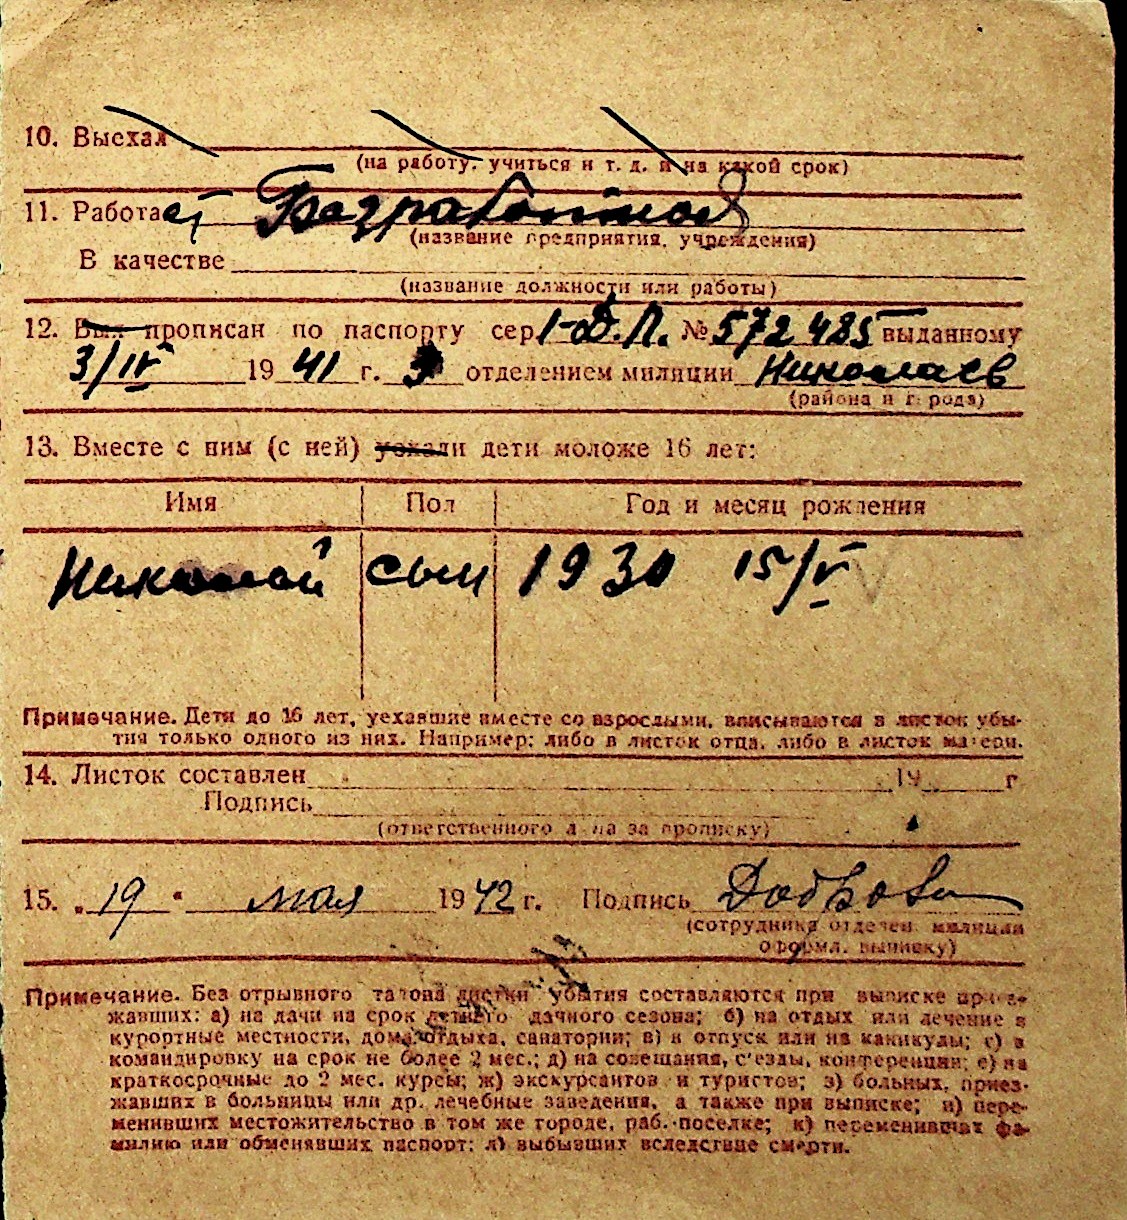 10. Выехал
(на работу, учиться и т. д. и на какой срок)
11. Работает Безработной
(название предприятия, учреждения)
В качестве
(название должности или работы)
12. Был прописан по паспорту сер. I-Д.Л. № 572485 выданному
3/IV 1941 г. 3 отделением милиции Николаев
(района и города)
13. Вместе с ним (с ней) уехали дети моложе 16 лет:
Имя Пол Год и месяц рождения
Николай сын 1930 15/V
Примечание. Дети до 16 лет, уехавшие вместе со взрослыми, вписываются в листок убы-
тия только одного из них. Например: либо в листок отца, либо в листок матери.
14. Листок составлен 19 г
Подпись
(ответственного л-ца за прописку)
15. „19“ мая 1942 г. Подпись
(сотрудника отделен. милиции
оформл. выписку)
Примечание. Без отрывного талона листки убытия составляются при выписке приез-
жавших: а) на дачи на срок летнего дачного сезона; б) на отдых или лечение в
курортные местности, дома отдыха, санатории; в) в отпуск или на каникулы; г) в
командировку на срок не более 2 мес.; д) на совещания, с'езды, конференции; е) на
краткосрочные до 2 мес. курсы; ж) экскурсантов и туристов; з) больных, приез-
жавших в больницы или др. лечебные заведения, а также при выписке; и) пере-
менивших местожительство в том же городе, раб. поселке; к) переменивших фа-
милию или обменявших паспорт; л) выбывших вследствие смерти.